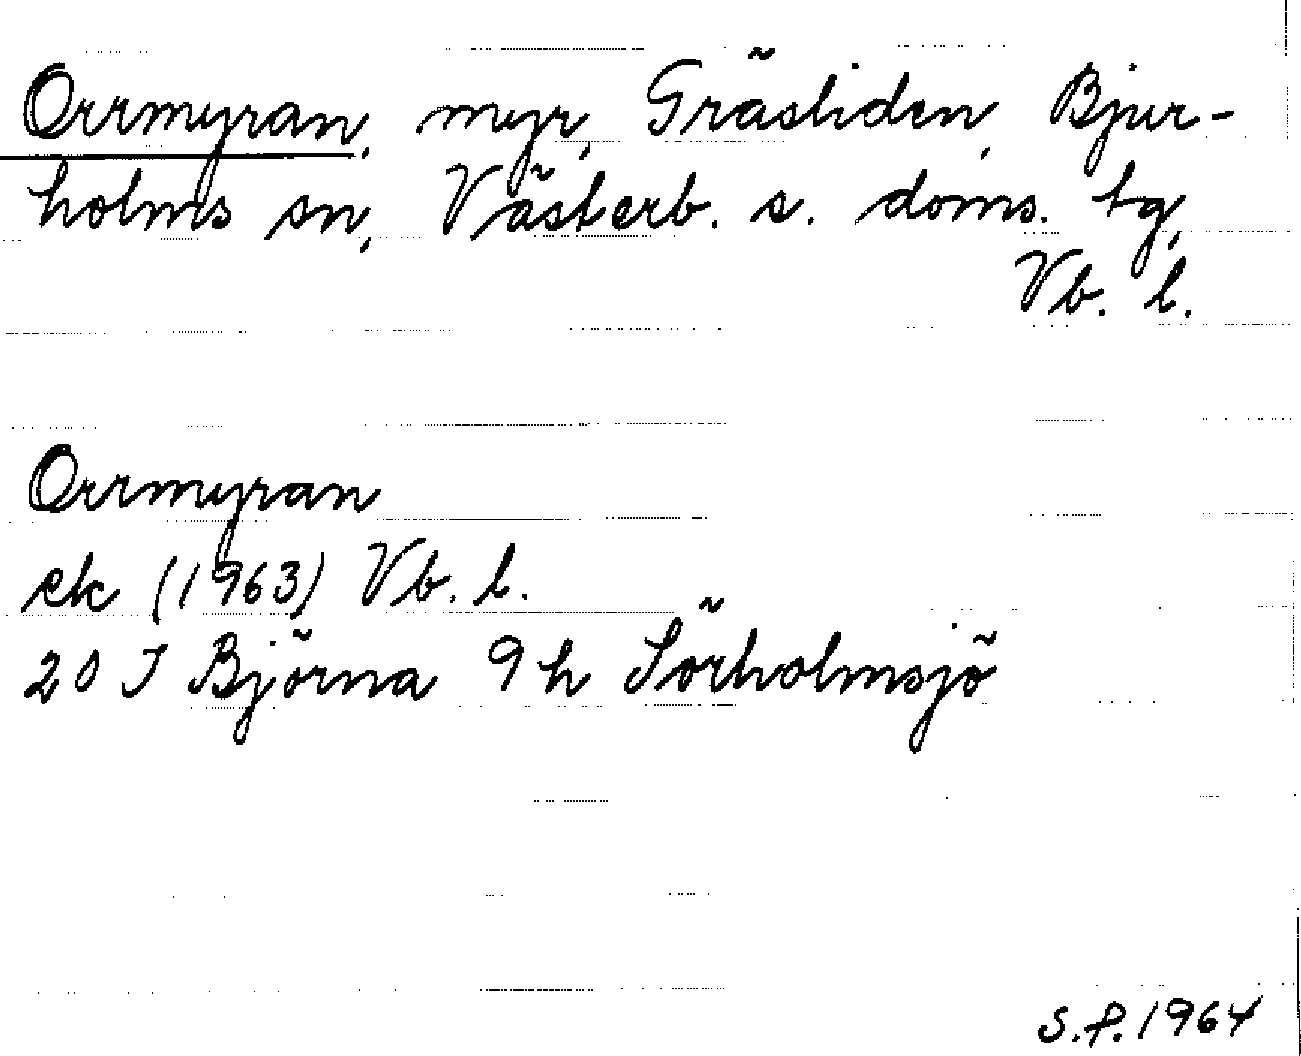 Orrmyran, myr, Gräsliden, Bjur-
holms sn, Västerb. s. doms. tg,
Vb. l.
Orrmyran
ek (1963) Vb. l.
20 J Björna 9 h Sörholmsjö
S.P. 1964